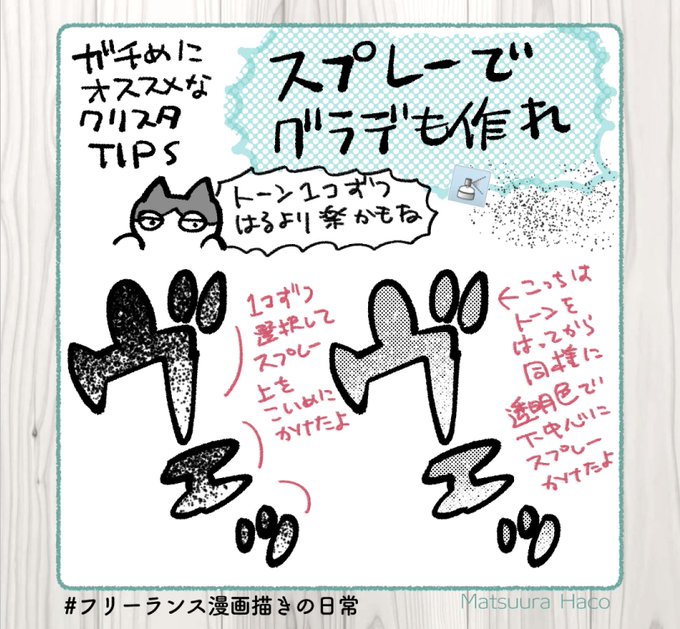 ガチめに
オススメな
クリスタ
TIPS
スプレーで
グラデも作れ
トーン1コずつ
はるより楽かもね
1コずつ
選択して
スプレー
上を
こいめに
かけたよ
←こっちは
トーンを
はってから
同様に
透明色で
下中心に
スプレー
かけたよ
ヴ
エ
ッ
ヴ
エ
ッ
#フリーランス漫画描きの日常
Matsuura Haco